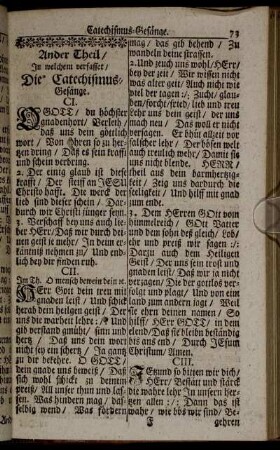 Catechismus-Gesänge. 73
Ander Theil/
In welchem verfasset/
Die Catechismus-
Gesänge.
CI.
O GOTT/ du höchster
gnadenhort/ Verleih/
daß uns dein göttlich
wort/ Von ohren so zu her-
tzen dring/ Daß es sein krafft
und schein verbring.
2. Der einig glaub ist diese
krafft/ Der steiff an JESU
Christo hafft. Die werck der
lieb sind dieser schein/ Dar-
durch wir Christi jünger seyn.
3. Verschaff bey uns auch lie-
ber HErr/ Daß wir durch dei-
nen geist je mehr/ In deim er-
käntniß nehmen zu/ Und end-
lich bey dir finden ruh.
CII.
Im Th. O mensch bewein dein
HErr Gott dein treu mit
gnaden leist/ Und schick
herab dein heilgen geist/ Der
uns die warheit lehre:/: Und
gib verstand/ hertz/ sinn und
Daß uns dein wort
nicht sey ein schertz/ Ja gantz
zu dir bekehre. O GOTT/
dein gnade uns beweiß/ Daß
sich wohl schickt zu deinem
preiß/ All unser thun und las-
sen. Was hindern mag/ das-
selbig wend/ Was fördern
mag/ das gib behend/ Zu
wandeln deine strassen.
2. Und zeuch uns wohl/ HErr/
bey der zeit/ Wir wissen nicht
was alter geit/ Auch nicht wie
viel der tagen:/: Zucht/ glau-
ben/ forcht/ fried/ lieb und treu
lehr uns dein geist/ der uns
mach neu/ Das woll er nicht
versagen. O HErr bewahr vor
falscher lehr/ Der bösen welt
auch treulich wehr/ Damit sie
uns nicht blende. HERR/
theil aus dein barmhertzig-
keit/ Zeig uns dardurch die
seligkeit/ Und hilff mit gnad
zum ende.
3. Dem HErren GOtt vom
himmelreich/ GOtt Vater
und dem sohn des gleich/ Lob/
ehr und preiß wir sagen:/:
Darzu auch dem Heiligen
Geist/ Der uns sein trost und
gnaden leist/ Daß wir ja nicht
verzagen/ Die der gottlos ver-
folgt und plagt/ Und von eim
land zum andern jagt/ Weil
sie ehrn deinen namen/ So
hilff/ HErr GOTT/ in dem
elend/ Daß sie bleiben beständig
biß ans end/ Durch JEsum
Christum/ Amen.
CIII.
JEtzund so bitten wir dich/
HErr/ Bestät und stärck
die wahre lehr In unsern her-
tzen allen:/: Dann das ist
wahr/ wie bös wir sind/ Be-
F gehren